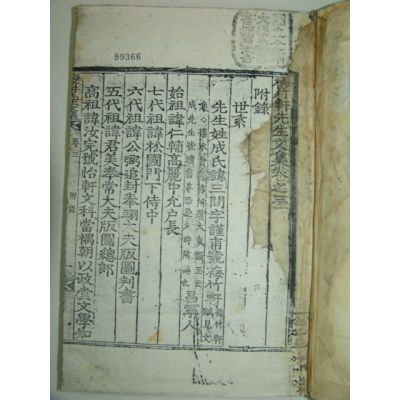 99366
梅竹軒先生文集卷之三
附錄
世系
先生姓成氏諱三問字謹甫號梅竹軒
昌寧人
始祖諱仁輔高麗中允戶長
七代祖諱松國門下侍中
六代祖諱公弼追封奉翊大夫版圖判書
五代祖諱君美奉常大夫版圖總郞
高祖諱汝完號怡軒文科當禑朝以政堂文學知
卷三
附錄